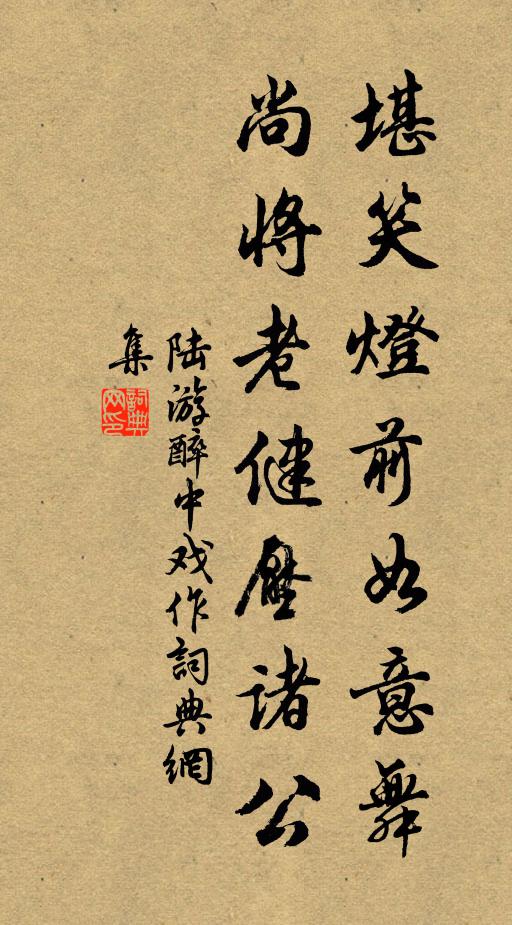 堪笑燈前如意舞
尚將老健壓諸公
陆游醉中戏作詞典網
集
詞典網印